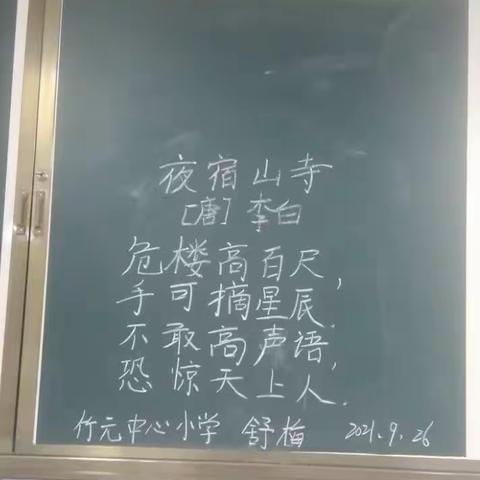 夜宿山寺
[唐] 李白
危楼高百尺,
手可摘星辰.
不敢高声语,
恐惊天上人.
竹元中心小学 舒梅 2021.9.26